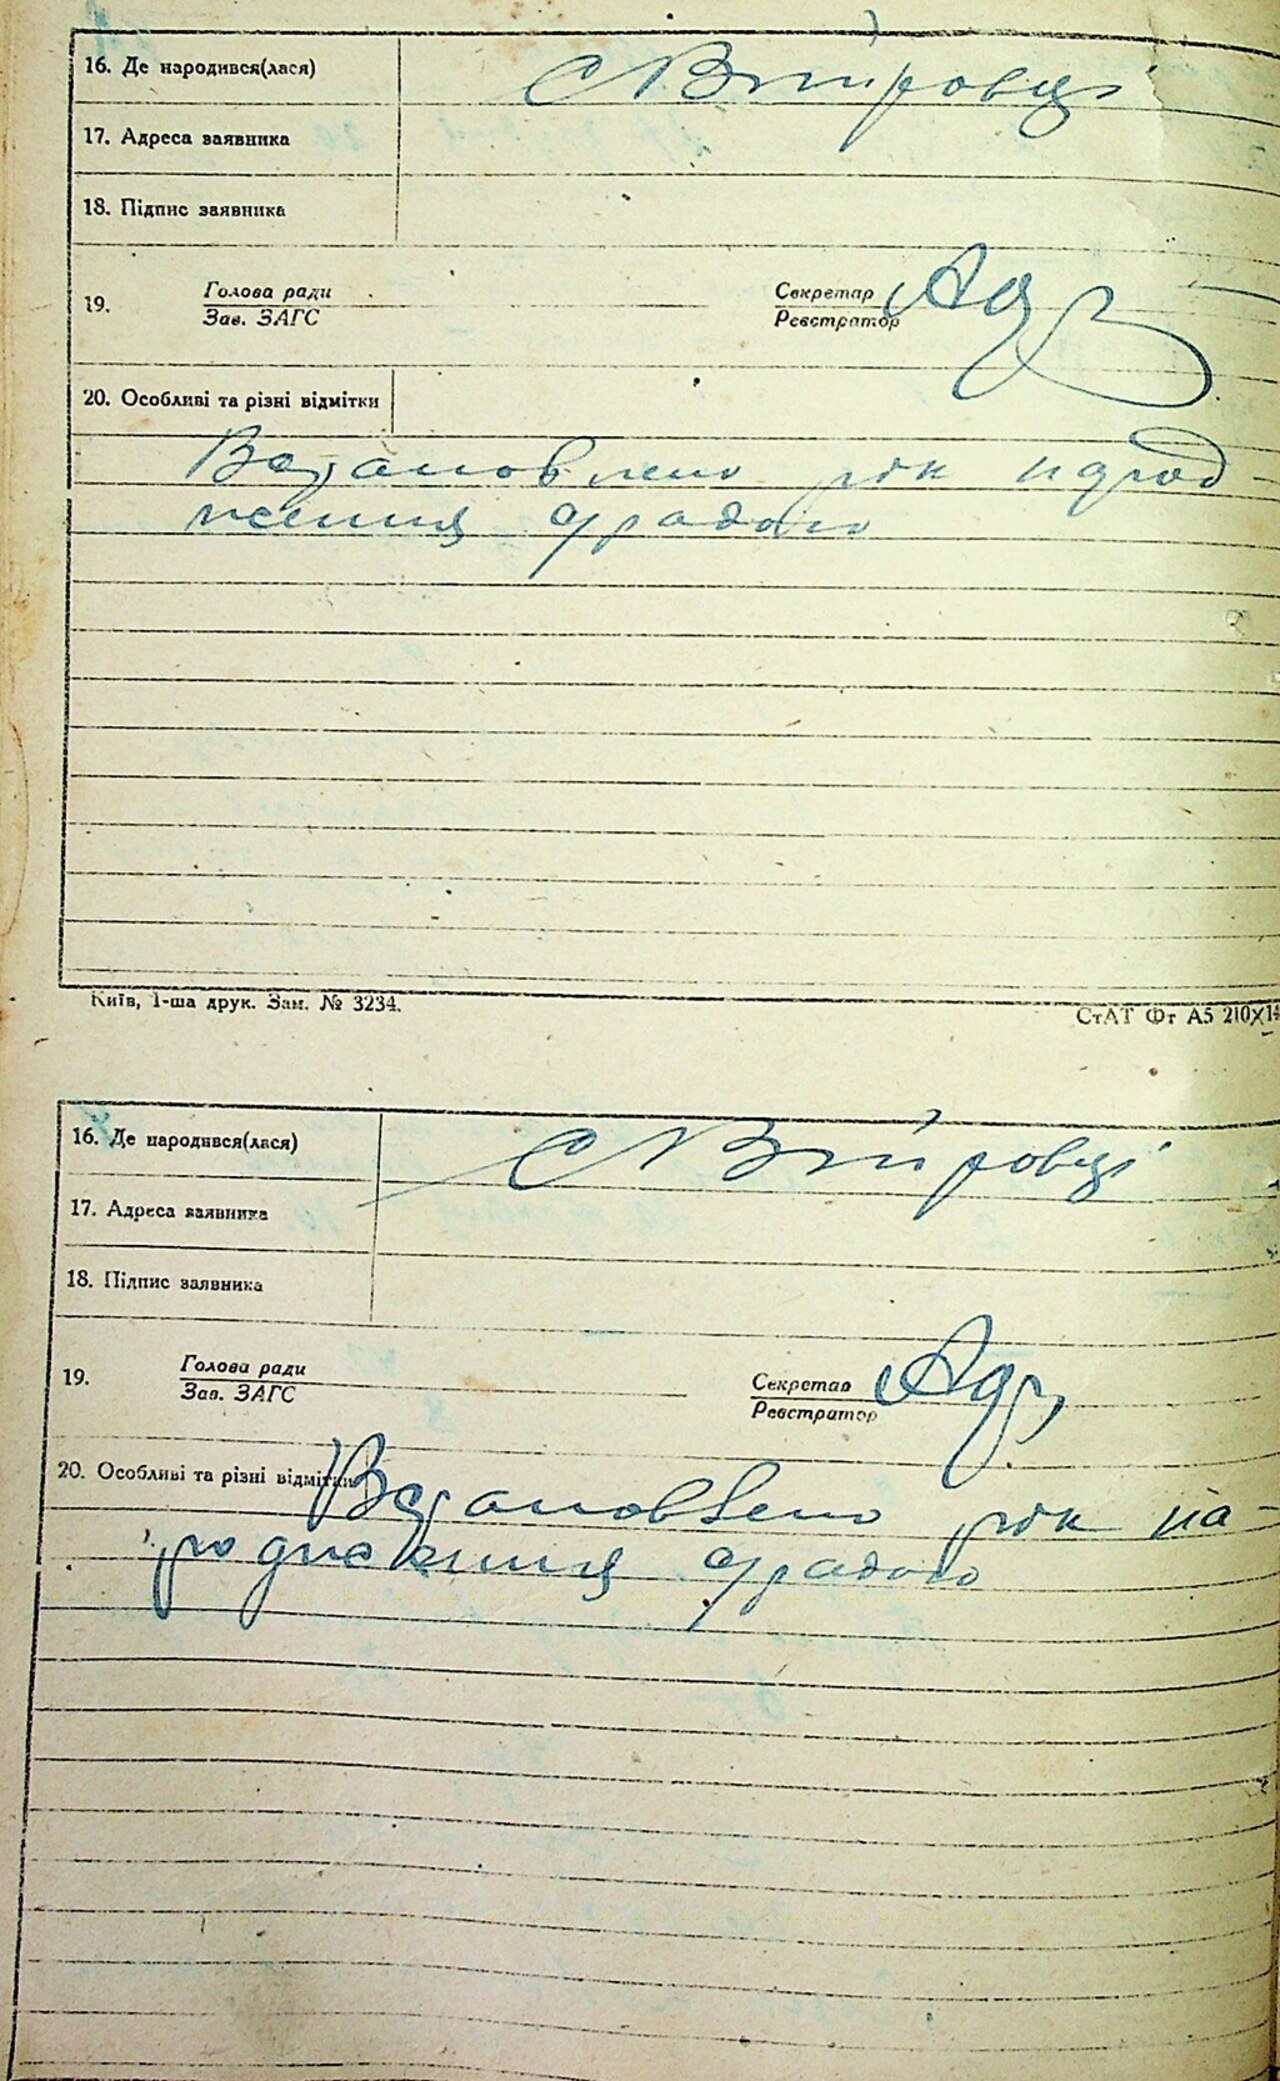 16. Де народився(лася) с Вйтровці
17. Адреса заявника
18. Підпис заявника
19. Голова ради Секретар
Зав. ЗАГС Реєстратор
20. Особливі та різні відмітки
Встановлено рік народ-
ження
Київ, 1-ша друк. Зам. № 3234. СтАТ Фт А5 210X14
16. Де народився(лася)
17. Адреса заявника
18. Підпис заявника
19. Голова ради Секретар
Зав. ЗАГС Реєстратор
20. Особливі та різні відмітки Встановлено рік на-
родження